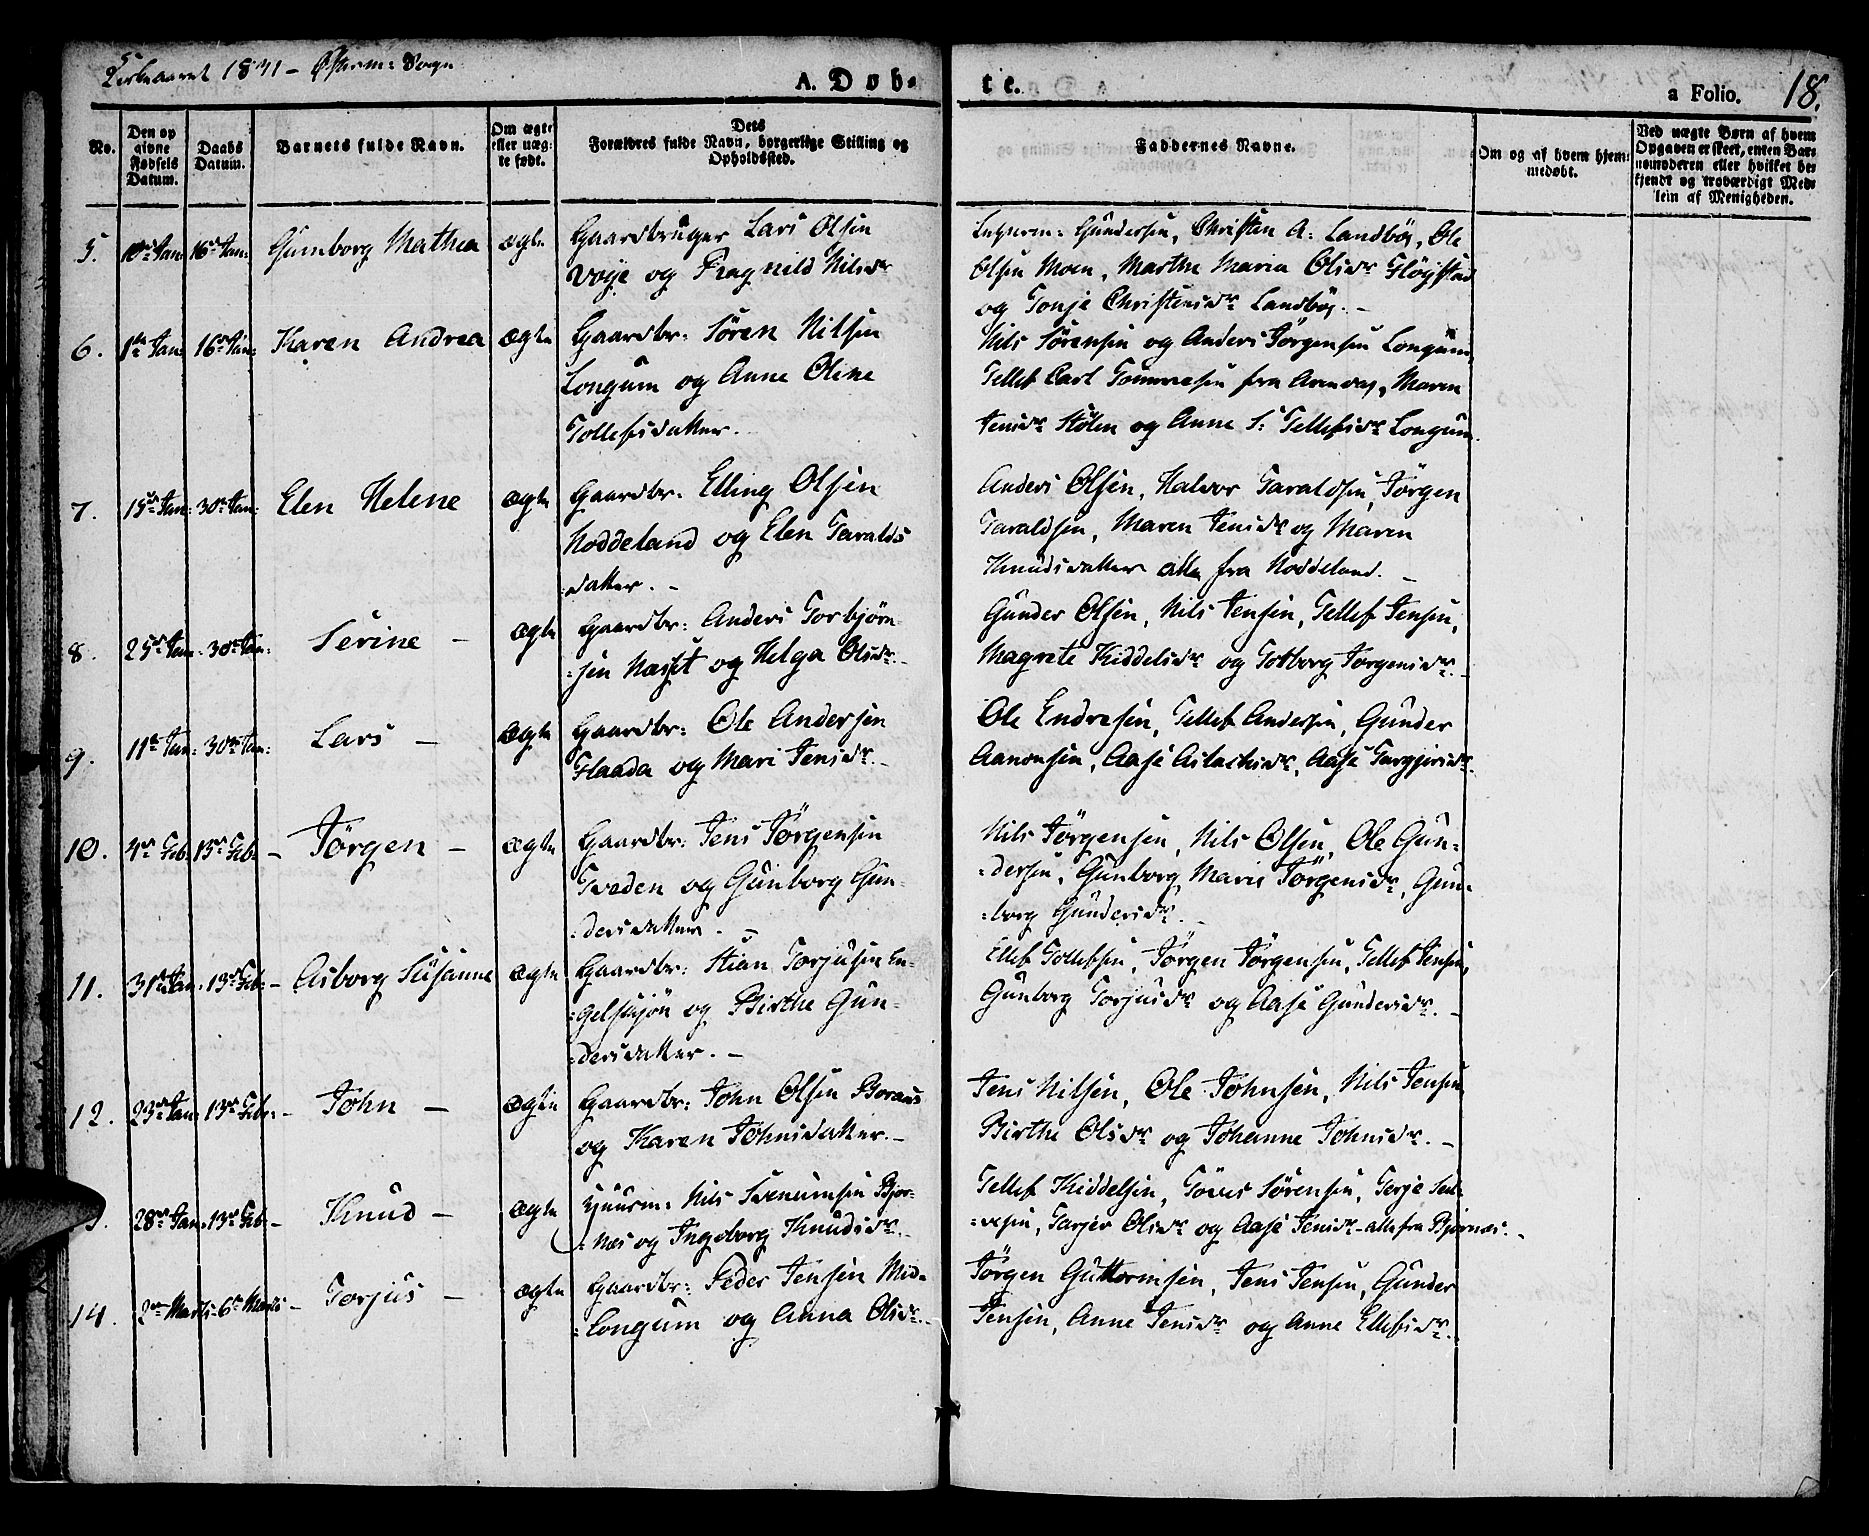 Kirkeaaret 1831 – Østrem: Sogn
A. Døb-
te.
a Folio. 18.
No.
Den op
givne
Fødsels
Datum.
Daabs
Datum.
Barnets fulde Navn.
Om ægte
eller uæg-
te født.
Dets
Forældres fulde Navn, borgerlige Stilling og
Opholdssted.
Faddernes Navne.
Om og af hvem hjem-
medøbt.
Ved uægte Børn af hvem
Opgaven er skeet, enten Bar-
nemoderen eller hvilket be-
kjendt og troværdigt Med-
lem af Menigheden.
5. 10de Jan: 16de Jan: Gunborg Mathea ægte Gaardbruger Lars Olsen
Voje og Ragnild Nilsdr
Gundersen, Christen A: Landbøe, Ole
Olsen Moen, Marthe Maria Olsdr Fløystad
og Tonje Christensdr Landbøe. –
6. 1ste Jan: 16de Jan: Karen Andrea ægte Gaardbr: Sören Nilsen
Longum og Anne Oline
Tollefsdatter.
Nils Sørensen og Anders Jørgensen Longum,
Tellef Carl fra Arendal, Maren
Jensdr Stölen og Anne S: Tellefsdr Longum.
7. 15de Jan: 30te Jan: Elen Helene ægte Gaardbr: Elling Olsen
Noddeland og Elen Taralds
datter. –
Anders Olsen, Halvor Taraldsen, Jörgen
Taraldsen, Maren Jensdr og Maren
Knudsdatter alle fra Noddeland. –
8. 25de Jan: 30te Jan: Serine – ægte Gaardbr: Anders Torbjörn-
-sen Næsset og Helga Olsdr. –
Gunder Olsen, Nils Jensen, Tellef Jensen,
Magrete Kiddelsdr og Gotborg Jörgensdr. –
9. 11te Jan: 30te Jan: Lars – ægte Gaardbr: Ole Andersen
Flaada og Mari Jensdr. –
Ole Endresen, Tellef Andersen, Gunder
Aanonsen, Aase Aslachsdr, Aase Targjersdr.
10. 4de Feb: 13de Feb: – Jörgen – ægte Gaardbr: Jens Jörgensen
Tveden og Gunborg Gun-
-dersdatter. –
Nils Jörgensen, Nils Olsen, Ole Gun-
-dersen, Gunborg Marie Jörgensdr, Gun-
-borg Gundersdr. –
11. 31te Jan: 13de Feb: – Asborg Susanne ægte Gaardbr: Stian Torjusen En-
-gelsjøn og Birthe Gun-
-dersdatter. –
Ellef Tollefsen, Jörgen Jörgensen, Tellef Jensen,
Gunborg Torjusdr og Aase Gundersdr. –
12. 23de Jan: 13de Feb: – John – ægte Gaardbr: John Olsen Boraas
og Karen Johnsdatter. –
Jens Nilsen, Ole Johnsen, Nils Jensen
Birthe Olsdr og Johanne Johnsdr. –
3. 28de Jan: 13de Feb: – Knud – ægte Huusm: Nils Svenumsen Bjor-
-næs og Ingeborg Knudsdr. –
Tellef Kiddelsen, Töres Sörensen, Terje Sal-
-vesen, Tarjer Olsdr og Aase Jensdr – alle fra Bjornæs. –
14. 2den Marts: 6te Marts – Torjus – ægte Gaardbr: Peder Jensen Mid-
-longum og Anna Olsdr. –
Jörgen Guttormsen, Jens Jensen, Gunder
Jensen, Anne Jensdr og Anne Ellefsdr. –